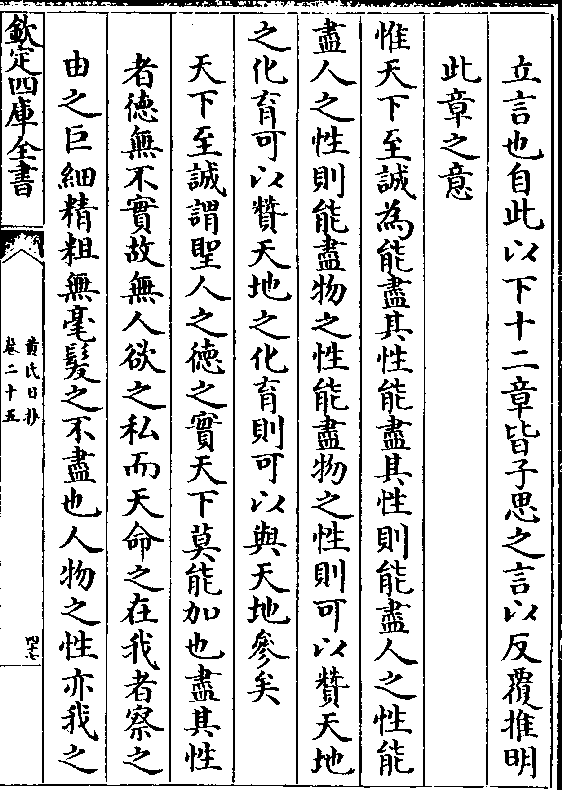 立言也自此以下十二章皆子思之言以反覆推明
此章之意
惟天下至誠為能盡其性能盡其性則能盡人之性能
盡人之性則能盡物之性能盡物之性則可以贊天地
之化育可以贊天地之化育則可以與天地參矣
天下至誠謂聖人之德之實天下莫能加也盡其性
者德無不實故無人欲之私而天命之在我者察之
由之巨細精粗無毫髮之不盡也人物之性亦我之
欽定四庫全書
黄氏日抄
卷二十五
四十七